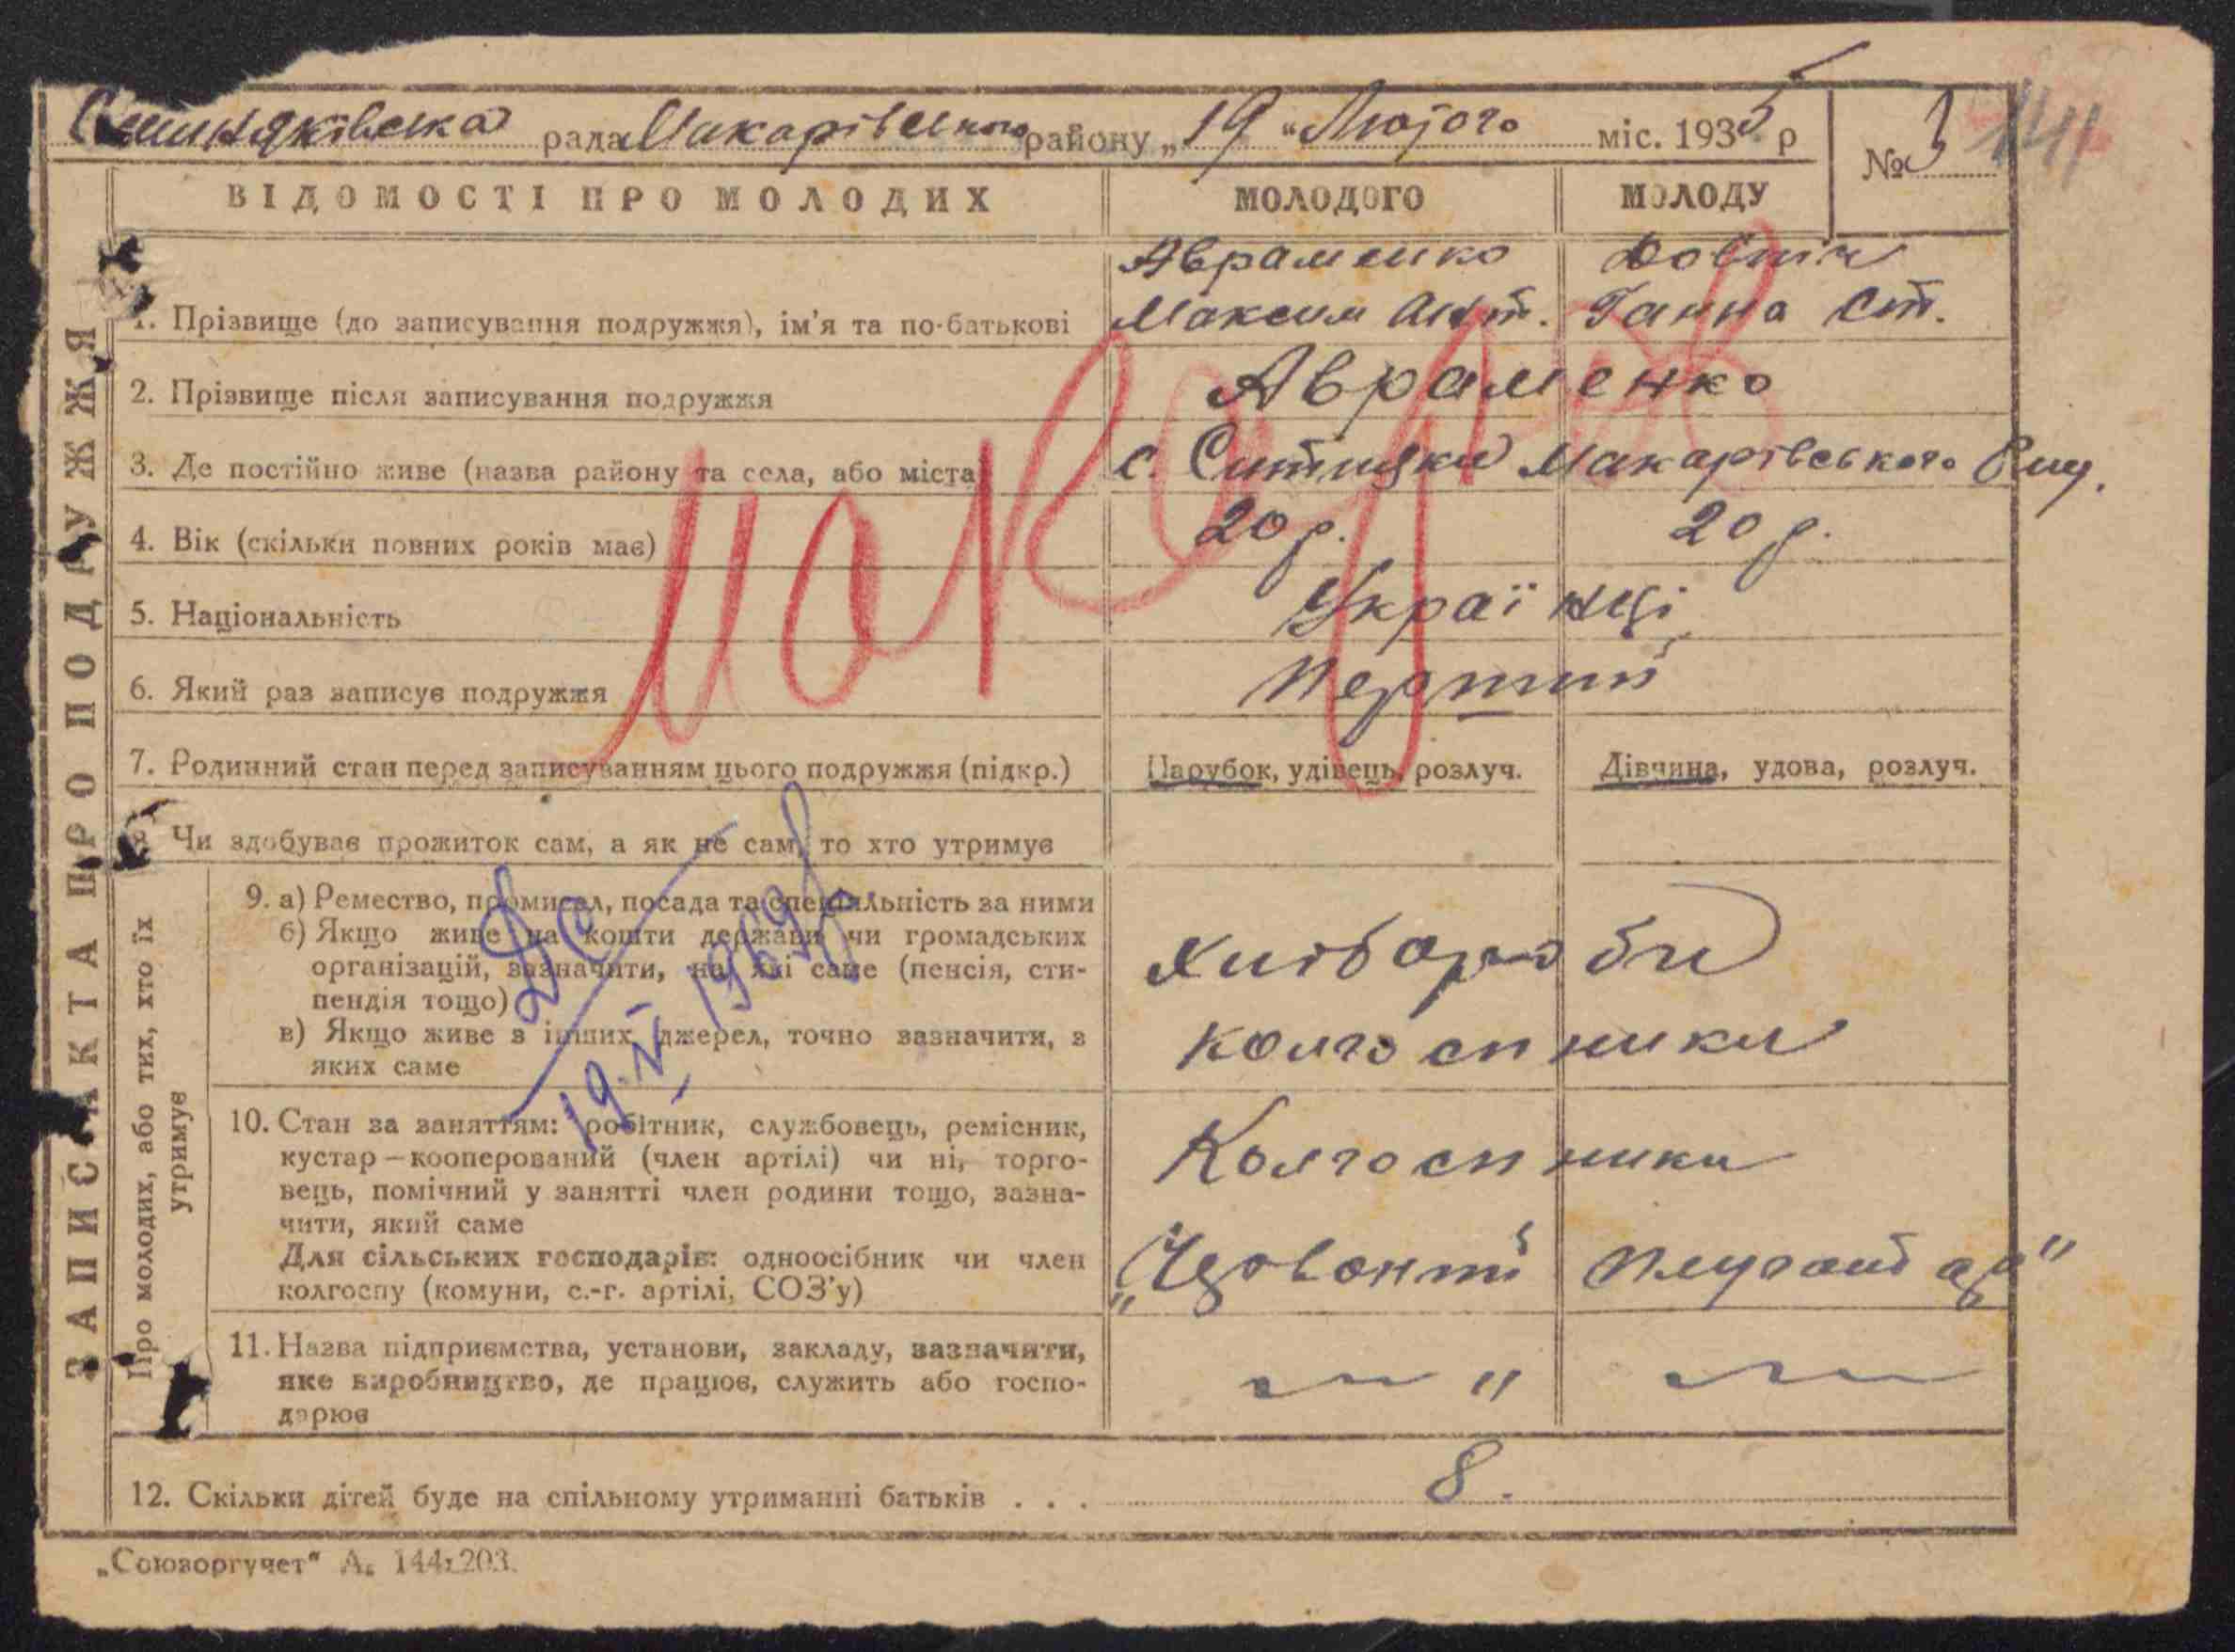 рада Макарівського району „19" Лютого міс. 1935 р
№ 3
ВІДОМОСТІ ПРО МОЛОДИХ
МОЛОДОГО
МОЛОДУ
ЗАПИС АКТА ПРО ПОДРУЖЖЯ
1. Прізвище (до записування подружжя), ім'я та по-батькові
Авраменко
Максим Ант.
Ганна Ст.
2. Прізвище після записування подружжя
Авраменко
3. Де постійно живе (назва району та села, або міста)
с. Ситняки Макарівського
4. Вік (скільки повних років має)
20 р.
20 р.
5. Національність
Українці
6. Який раз записує подружжя
Перший
7. Родинний стан перед записуванням цього подружжя (підкр.)
Парубок, удівець, розлуч.
Дівчина, удова, розлуч.
Чи здобуває прожиток сам, а як не сам, то хто утримує
Про молодих, або тих, хто їх
утримує
9. а) Ремество, промисел, посада та спеціяльність за ними
б) Якщо живе на кошти держави чи громадських
організацій, зазначити, на які саме (пенсія, сти-
пендія тощо)
в) Якщо живе з інших джерел, точно зазначити, з
яких саме
Хлібороби
колгоспники
10. Стан за заняттям: робітник, службовець, ремісник,
кустар—кооперований (член артілі) чи ні, торго-
вець, помічний у занятті член родини тощо, зазна-
чити, який саме
Для сільських господарів: одноосібник чи член
колгоспу (комуни, с.-г. артілі, СОЗ'у)
Колгоспники
„Червоний Плугатар"
11. Назва підприємства, установи, закладу, зазначити,
яке виробництво, де працює, служить або госпо-
дарює
— " —
12. Скільки дітей буде на спільному утриманні батьків . . .
8.
19.IV 1969
„Союзоргучет"